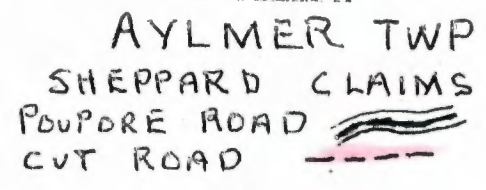 AYLMER TWP
SHEPPARD CLAIMS
POUPORE ROAD
CUT ROAD